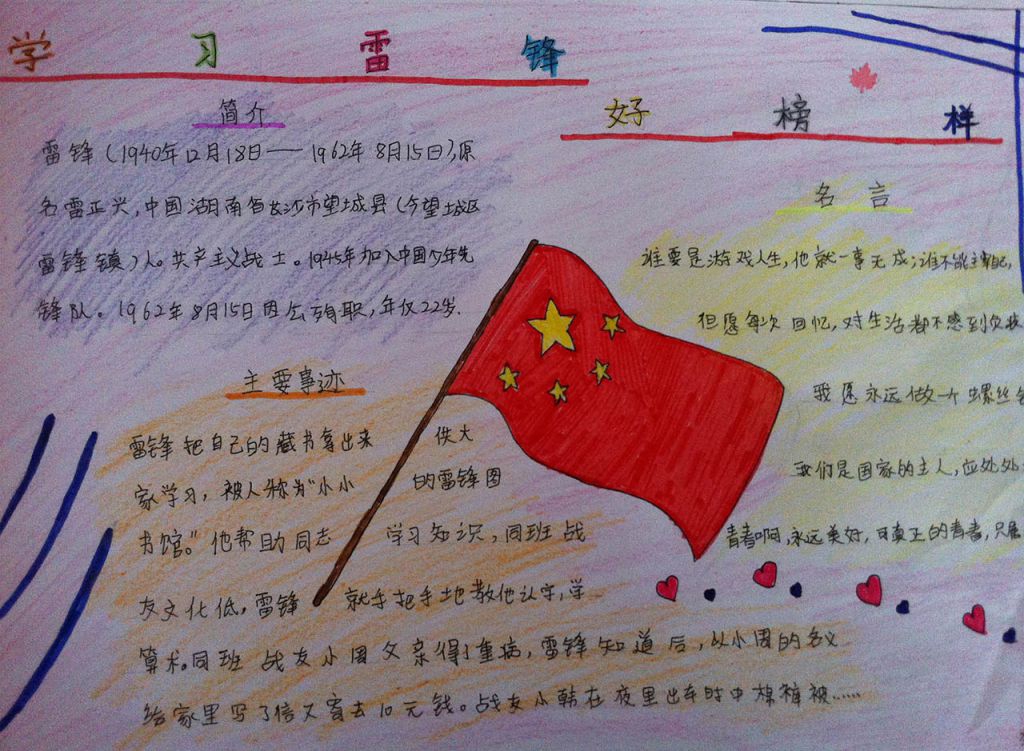 学习雷锋
好榜样
简介
雷锋（1940年12月18日——1962年8月15日），原
名雷正兴，中国湖南省长沙市望城县（今望城区
雷锋镇）人。共产主义战士。1945年加入中国少年先
锋队。1962年8月15日因公殉职，年仅22岁.
主要事迹
雷锋把自己的藏书拿出来 供大
家学习，被人称为“小小 的雷锋图
书馆。”他帮助同志 学习知识，同班战
友文化低，雷锋 就手把手地教他认字，学
算术。同班战友小周父亲得了重病，雷锋知道后，以小周的名义
给家里写了信又寄去10元钱。战友小韩在夜里出车时中棉裤被……
名言
谁要是游戏人生，他就一事无成；谁不能主宰自己，
但愿每次回忆，对生活都不感到负疚
我愿永远做一个螺丝
我们是国家的主人，应处处
青春啊，永远美好，可真正的青春，只属